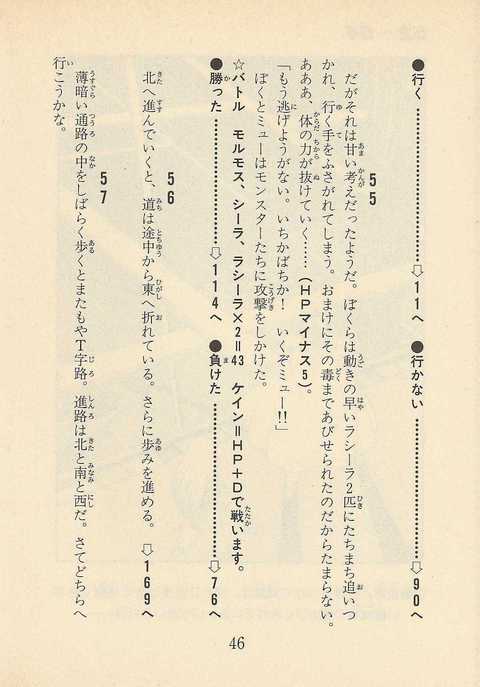 ●行く……………………⇨11へ　●行かない……………………⇨90へ
55
だがそれは甘い考えだったようだ。ぼくらは動きの早いラシーラ2匹にたちまち追いつ
かれ、行く手をふさがれてしまう。おまけにその毒まであびせられたのだからたまらない。
あああ、体の力が抜けていく……（HPマイナス5）。
「もう逃げようがない。いちかばちか！　いくぞミュー!!」
ぼくとミューはモンスターたちに攻撃をしかけた。
☆バトル　モルモス、シーラ、ラシーラ×2＝43　ケイン＝HP＋Dで戦います。
●勝った……………………⇨114へ　●負けた……………………⇨76へ
56
北へ進んでいくと、道は途中から東へ折れている。さらに歩みを進める。　⇨169へ
57
薄暗い通路の中をしばらく歩くとまたもやT字路。進路は北と南と西だ。さてどちらへ
行こうかな。
46